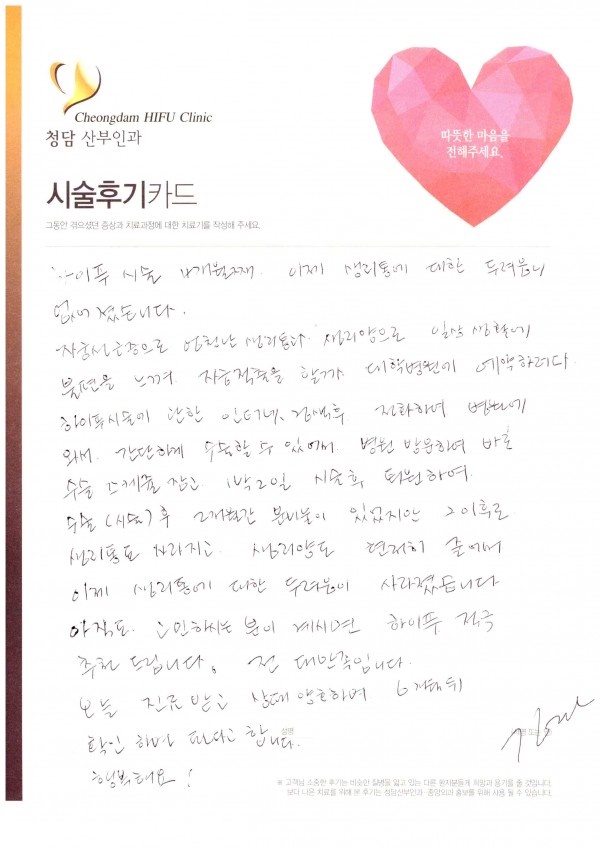 Cheongdam HIFU Clinic
청담 산부인과
따뜻한 마음을
전해주세요.
시술후기카드
그동안 겪으셨던 증상과 치료과정에 대한 치료기를 작성해 주세요.
하이푸 시술 4개월째. 이제 생리통에 대한 두려움이
없어졌습니다.
자궁선근증으로 엄청난 생리통과 생리양으로 일상생활에
불편을 느껴. 자궁적출을 할까 대학병원에 예약하려다
하이푸시술에 관한 인터넷 검색후 전화하여 병원에
와서. 간단하게 수술할 수 있어서. 병원 방문하여 바로
수술 스케쥴 잡고 1박2일 시술후 퇴원하여.
수술 (시술) 후 2개월간 분비물이 있었지만 그 이후로
생리통도 사라지고. 생리양도 현저히 줄어서
이제 생리통에 대한 두려움이 사라졌습니다
아직도. 고민하시는 분이 계시면 하이푸 적극
추천 드립니다. 전 대만족입니다.
오늘 진료 받고 상태 양호하며 6개월뒤
확인 하면 된다고 합니다.
성명
행복해요!
※ 고객님 소중한 후기는 비슷한 질병을 앓고 있는 다른 환자분들께 희망과 용기를 줄 것입니다.
보다 나은 치료를 위해 본 후기는 청담산부인과·중앙외과 홍보를 위해 사용 될 수 있습니다.